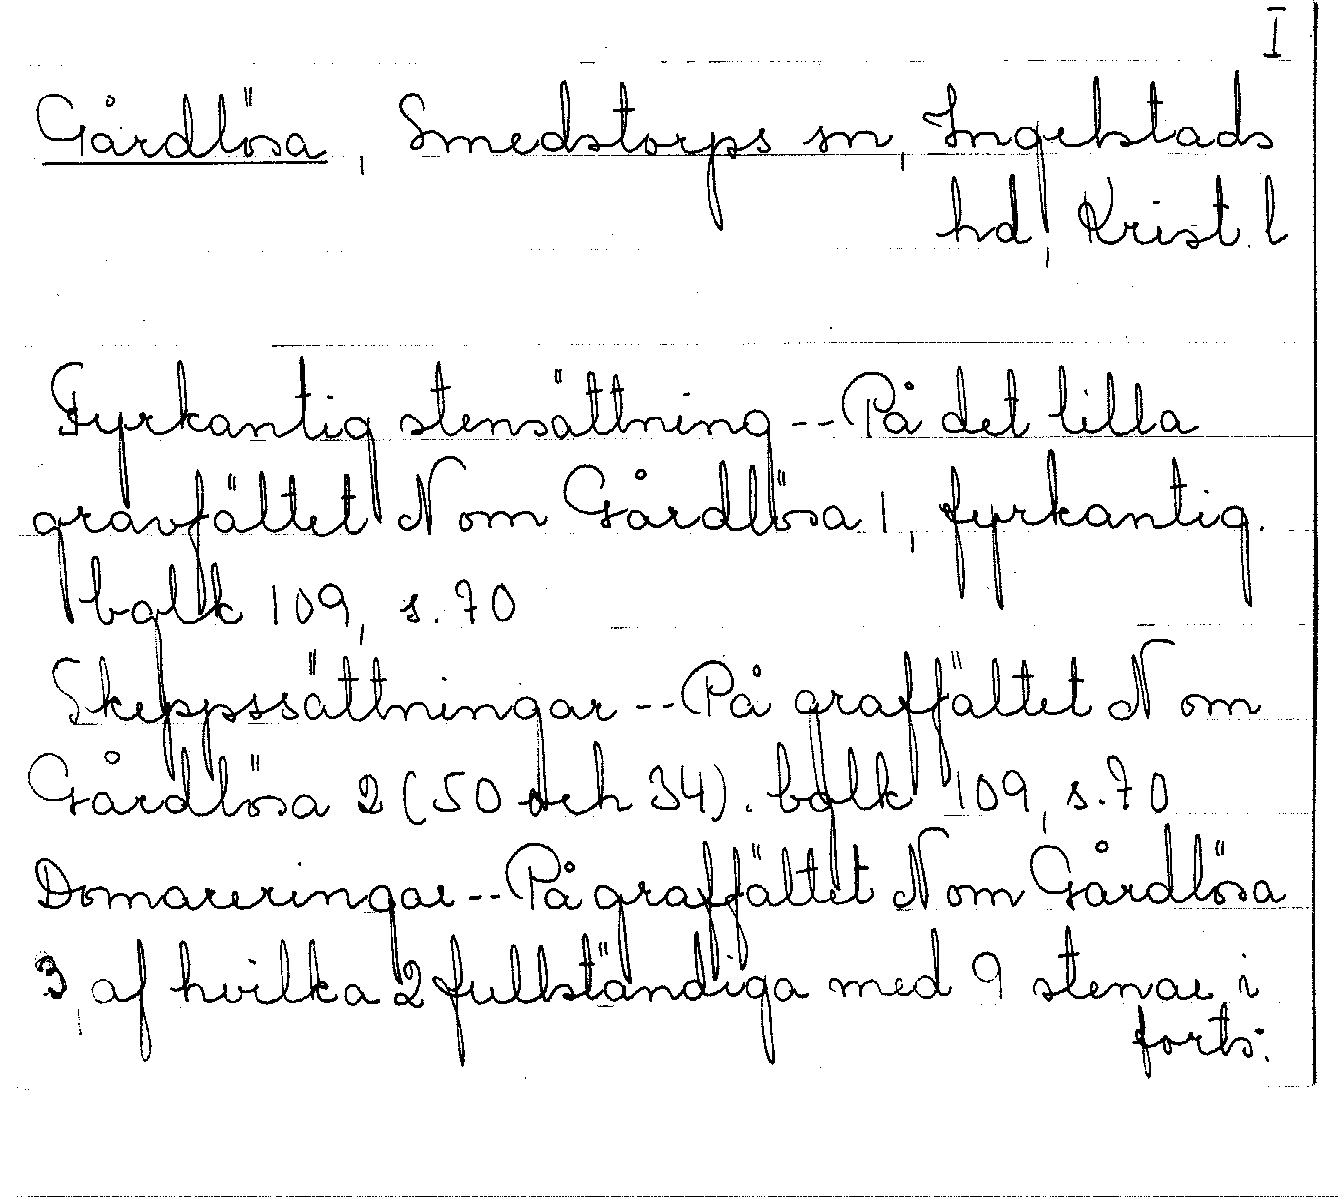 I
Gårdlösa, Smedstorps sn, Ingelstads
hd, Krist. l
Fyrkantig stensättning -- På det lilla
gravfältet N om Gårdlösa 1, fyrkantig.
balk 109, s. 70
Skeppssättningar -- På graffältet N om
Gårdlösa 2 (50 och 34). balk 109, s. 70
Domareringar -- På graffältet N om Gårdlösa
3, af hvilka 2 fullständiga med 9 stenar i
forts.